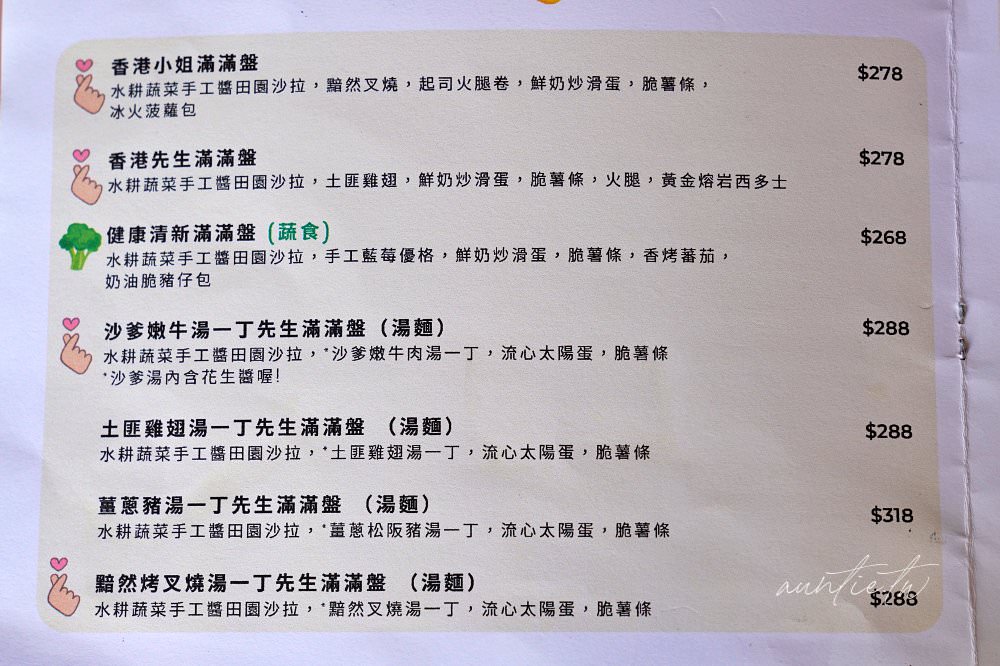 香港小姐滿滿盤 $278
水耕蔬菜手工醬田園沙拉，黯然叉燒，起司火腿卷，鮮奶炒滑蛋，脆薯條，
冰火菠蘿包
香港先生滿滿盤 $278
水耕蔬菜手工醬田園沙拉，土匪雞翅，鮮奶炒滑蛋，脆薯條，火腿，黃金熔岩西多士
健康清新滿滿盤 (蔬食) $268
水耕蔬菜手工醬田園沙拉，手工藍莓優格，鮮奶炒滑蛋，脆薯條，香烤蕃茄，
奶油脆豬仔包
沙爹嫩牛湯一丁先生滿滿盤（湯麵） $288
水耕蔬菜手工醬田園沙拉，*沙爹嫩牛肉湯一丁，流心太陽蛋，脆薯條
*沙爹湯內含花生醬喔!
土匪雞翅湯一丁先生滿滿盤 （湯麵） $288
水耕蔬菜手工醬田園沙拉，*土匪雞翅湯一丁，流心太陽蛋，脆薯條
薑蔥豬湯一丁先生滿滿盤 （湯麵） $318
水耕蔬菜手工醬田園沙拉，*薑蔥松阪豬湯一丁，流心太陽蛋，脆薯條
黯然烤叉燒湯一丁先生滿滿盤 （湯麵） $288
水耕蔬菜手工醬田園沙拉，*黯然叉燒湯一丁，流心太陽蛋，脆薯條
auntie.tw